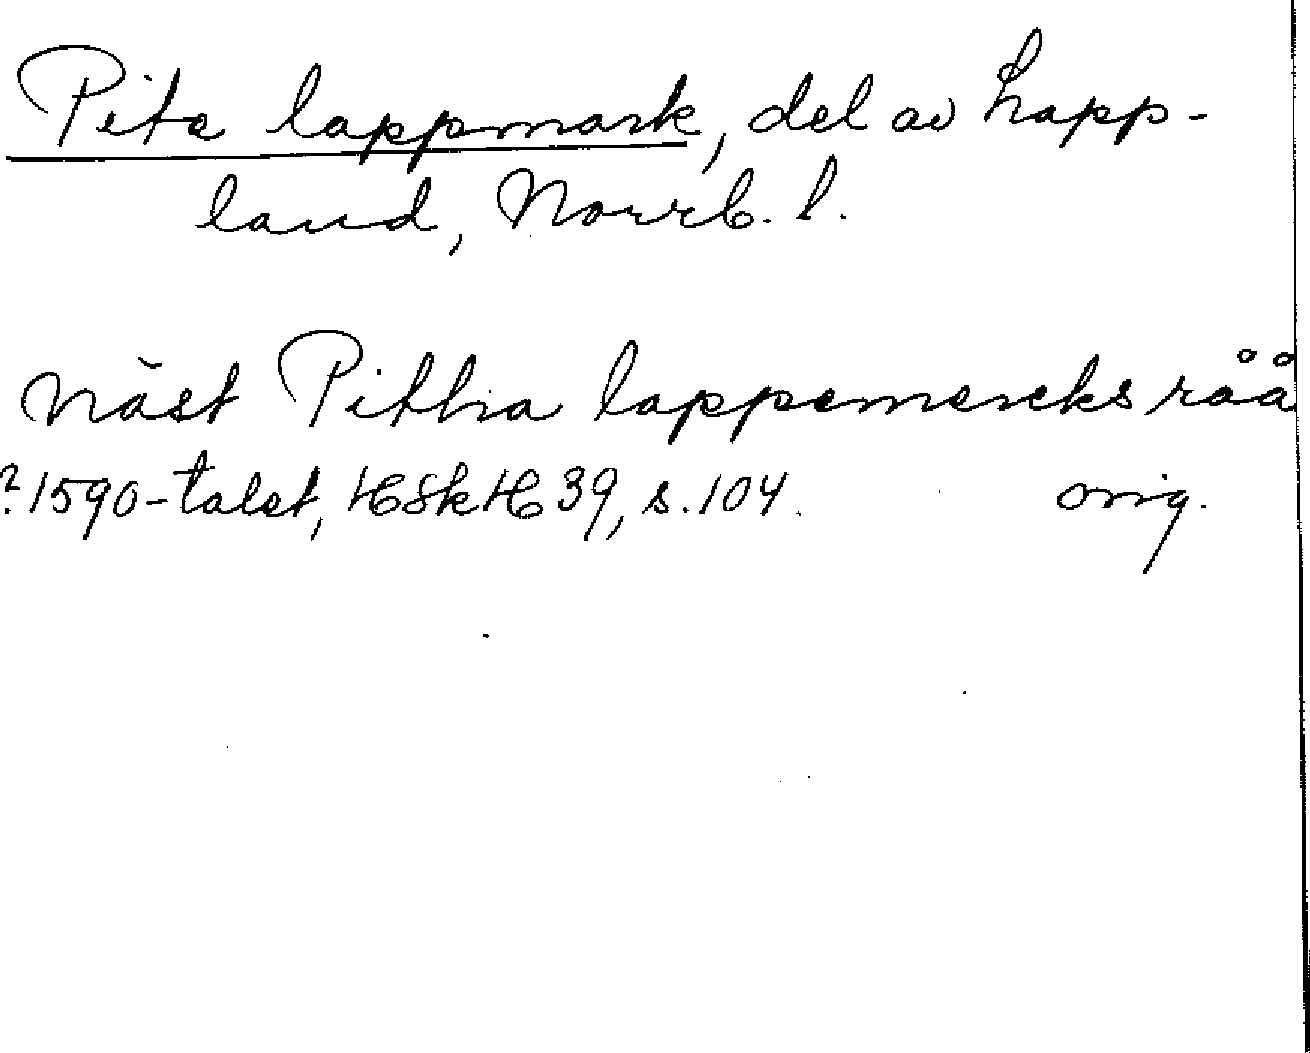 Pite lappmark, del av Lapp-
land, Norrb. l.
näst Pittha lappemercks råå
?1590-talet, HSkH 39, s. 104. orig.